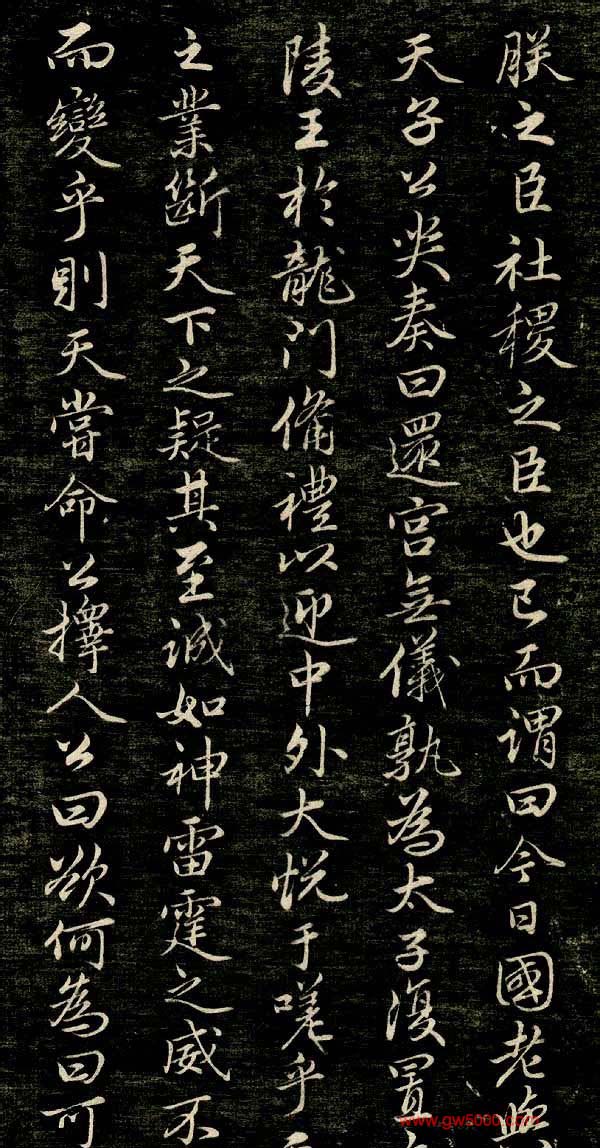 朕之臣社稷之臣也已而謂曰今日國老與
天子公哭奏曰還宮無儀孰為太子復置
陵王於龍門備禮以迎中外大悅于嗟乎
之業斷天下之疑其至誠如神雷霆之威不
而變乎則天嘗命公擇人公曰欲何為曰可
www.gw5000.com